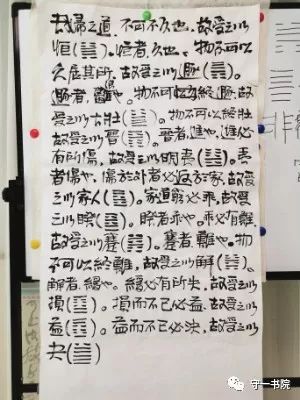 夫婦之道,不可不久也,故受之以
恒(䷟)。恒者,久也。物不可以
久居其所,故受之以遯(䷠)。
遯者,也。物不可以終遯,故
受之以大壯(䷡)。物不可以終壯
故受之以晉(䷢)。晉者,進也,進必
有所傷,故受之以明夷(䷣)。夷
者傷也。傷於外者必返於家,故受
之以家人(䷤)。家道窮必乖,故受
之以睽(䷥)。睽者乖也。乖必有難
故受之以蹇(䷦)。蹇者,難也。物
不可以終難,故受之以解(䷧)。
解者,緩也。緩必有所失,故受之以
損(䷨)。損而不已必益,故受之以
益(䷩)。益而不已必決,故受之以
夬(䷪)
非
守一书院